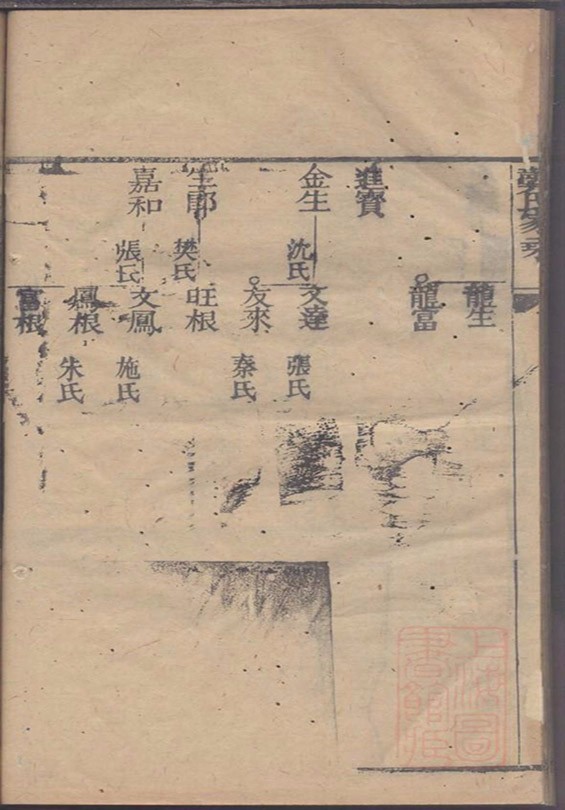 龍生
龍富
進寶
金生
沈氏
文達
張氏
友來
秦氏
樊氏
旺根
嘉和
張氏
文鳳
施氏
鳳根
朱氏
富根